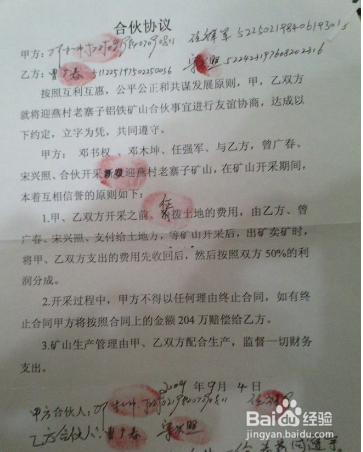 合伙协议
甲方:
乙方: 曾广春 511225197502250036 宋兴照
按照互利互惠,公平公正和共谋发展原则,甲,乙双方
就将迎燕村老寨子铝铁矿山合伙事宜进行友谊协商,达成以
下约定,立字为我,共同遵守。
甲方: 邓书权、邓木坤、任强军、与乙方,曾广
宋兴照、合伙开采 迎燕村老寨子矿山,在矿山开采期间,
本着互相信誉的原则如下:
1.甲、乙双方开采之前、 拨土地的费用,由乙方、曾
广春、宋兴照、支付给土地方,等矿山开采后,出矿卖矿时,
将甲、乙双方支出的费用先收回后,然后按照双方 50%的利
润分成。
2.开采过程中,甲方不得以任何理由终止合同,如有终
止合同甲方将按照合同上的金额 204 万赔偿给乙方。
3.矿山生产管理由甲、乙双方配合生产,监督一切财务
支出。
2009 年 9 月 4 日
甲方合伙人:
乙方合伙人: 曾广春 宋兴照
Baidu 百度 经验
jingyan.baidu.com